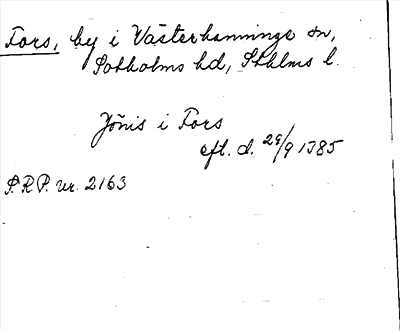 Fors, by i Västerhanninge sn,
Sotholms hd, Sthlms l.
Jönis i Fors
eft. d. 29/9 1385
S.R.P. nr. 2163